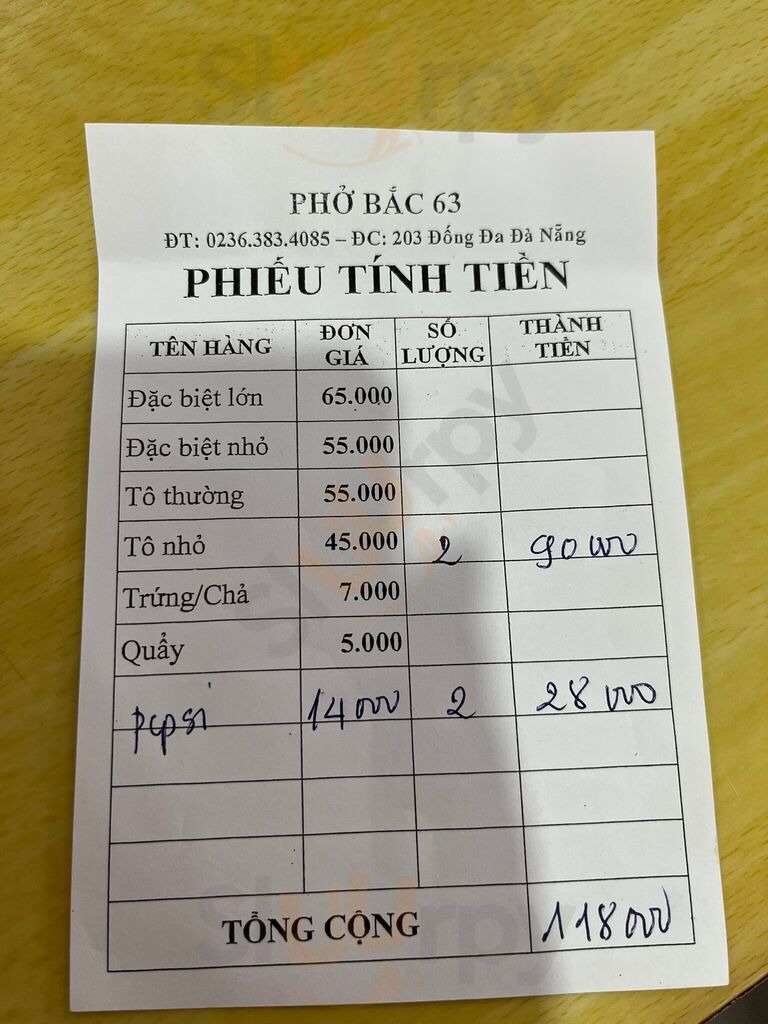 PHỞ BẮC 63
ĐT: 0236.383.4085 – ĐC: 203 Đống Đa Đà Nẵng
PHIẾU TÍNH TIỀN
TÊN HÀNG ĐƠN GIÁ SỐ LƯỢNG THÀNH TIỀN
Đặc biệt lớn 65.000
Đặc biệt nhỏ 55.000
Tô thường 55.000
Tô nhỏ 45.000 2 90 000
Trứng/Chả 7.000
Quẩy 5.000
pepsi 14 000 2 28 000
TỔNG CỘNG 118 000
Sluurpy
Sluurpy
Sluurpy